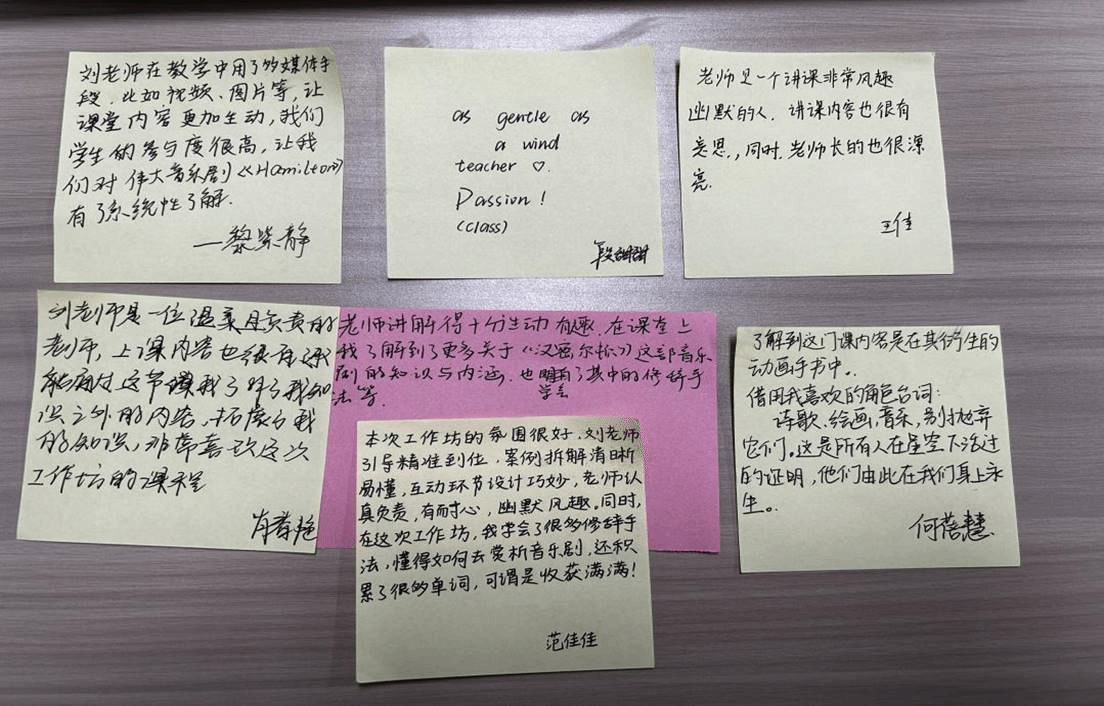 刘老师在教学中用了多媒体手
段，比如视频、图片等，让
课堂内容更加生动，我们
学生的参与度很高，让我
们对伟大音乐剧《Hamilton》
有了系统性了解．
—黎紫静
as gentle as
a wind
teacher ♡.
Passion!
(class)
段甜甜
老师是一个讲课非常风趣
幽默的人．讲课内容也很有
意思，同时，老师长的也很漂
亮．
王佳
刘老师是一位温柔且负责的
老师，上课内容也很有
这节课我了解了我知
识之外的内容，拓展了我
的知识，非常喜欢这次
工作坊的课程
肖
老师讲解得十分生动有趣．在课堂上
我了解到了更多关于《汉密尔顿》这部音乐
剧的知识与内涵．也学会了其中的修辞手
法等．
本次工作坊的氛围很好．刘老师
引导精准到位，案例拆解清晰
易懂，互动环节设计巧妙，老师认
真负责，有耐心，幽默风趣。同时，
在这次工作坊，我学会了很多修辞手
法，懂得如何去赏析音乐剧，还积
累了很多单词，可谓是收获满满！
范佳佳
了解到这门课内容是在其衍生的
动画手书中。
借用我喜欢的角色台词：
诗歌、绘画，音乐，别抛弃
它们。这是所有人在星空下活过
的证明，他们由此在我们身上永
生。
何蓓慧